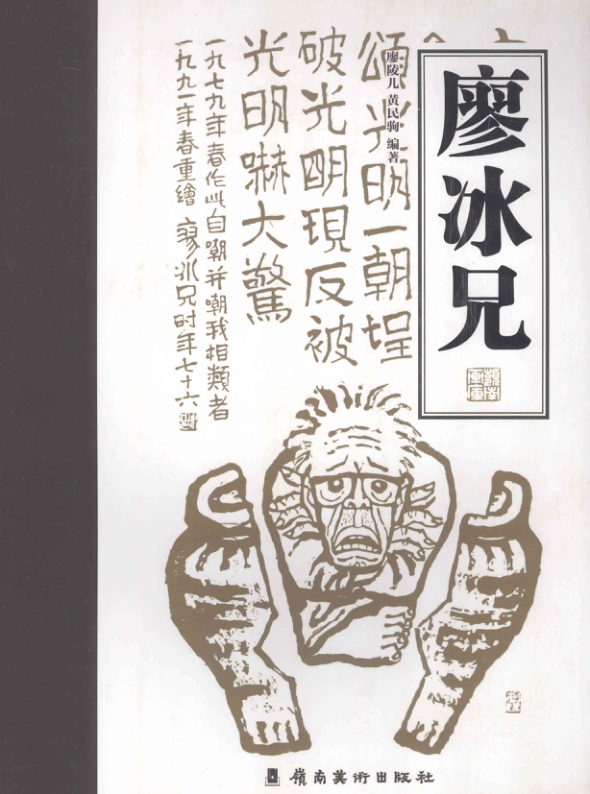 廖冰兄
廖陵儿 黄民驹 编著
頌光明一朝埕
破光明現反被
光明嚇大驚
一九七九年春作此自嘲并嘲我相類者
一九九一年春重繪 廖冰兄时年七十六
嶺南美術出版社